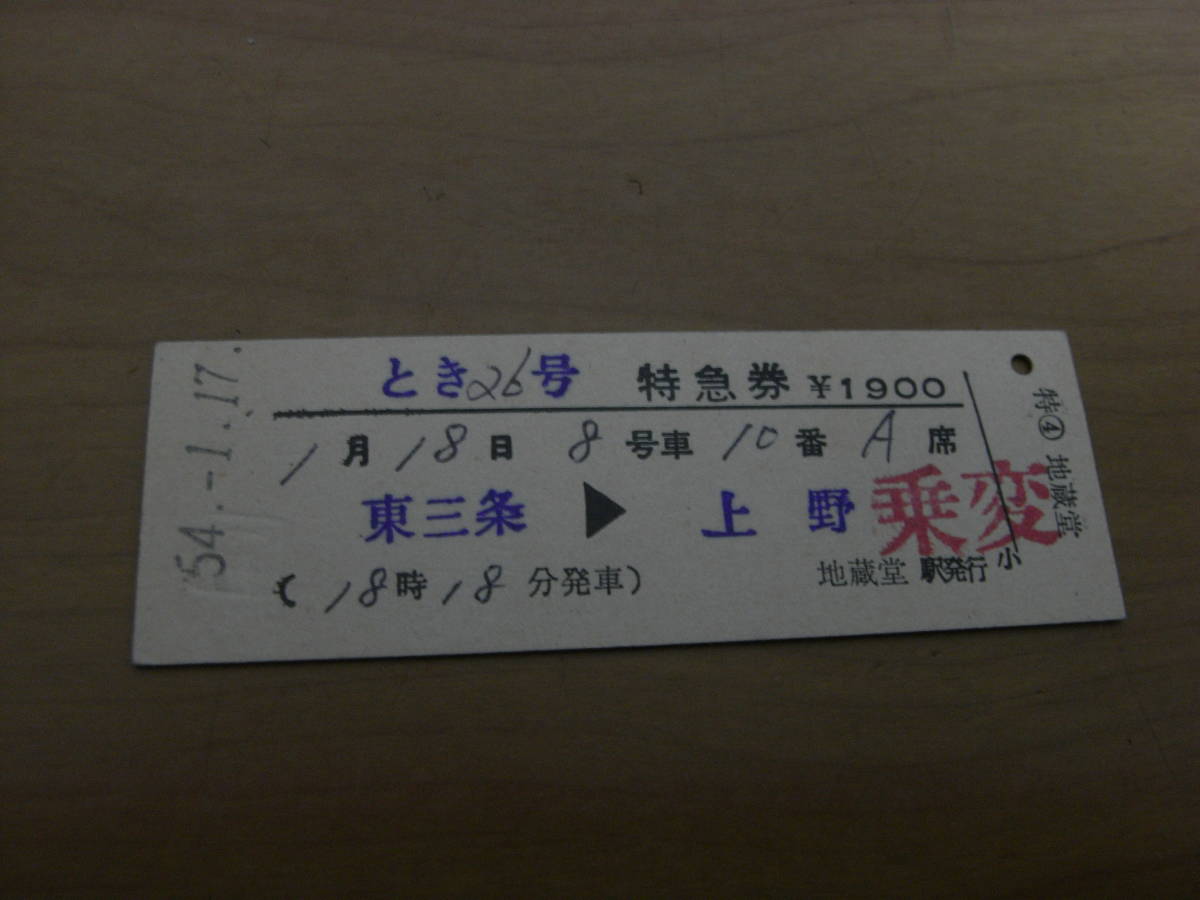 とき26号 特急券 ¥1900
1月18日 8号車 10番 A席
東三条 ▶ 上野
乗変
(18時18分発車)
地蔵堂駅発行
小
54.-1.17.
特④ 地蔵堂